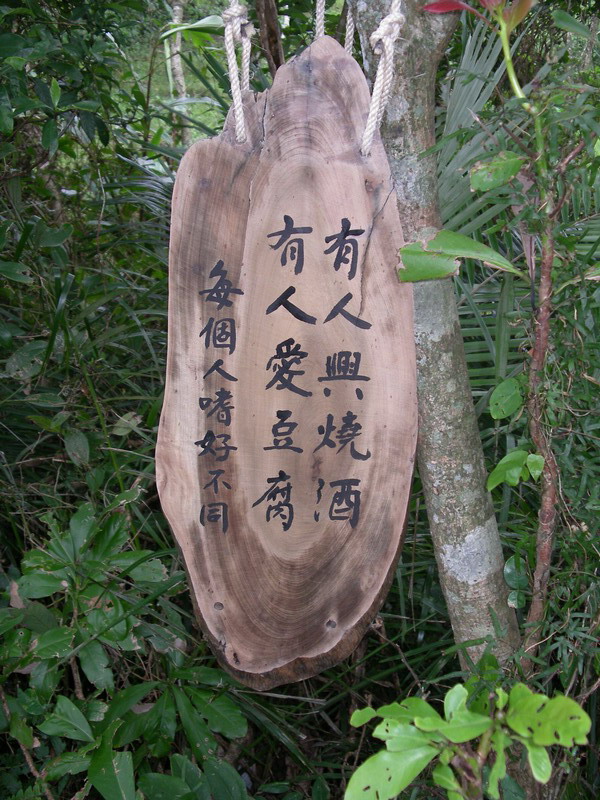 有人興燒酒
有人愛豆腐
每個人嗜好不同